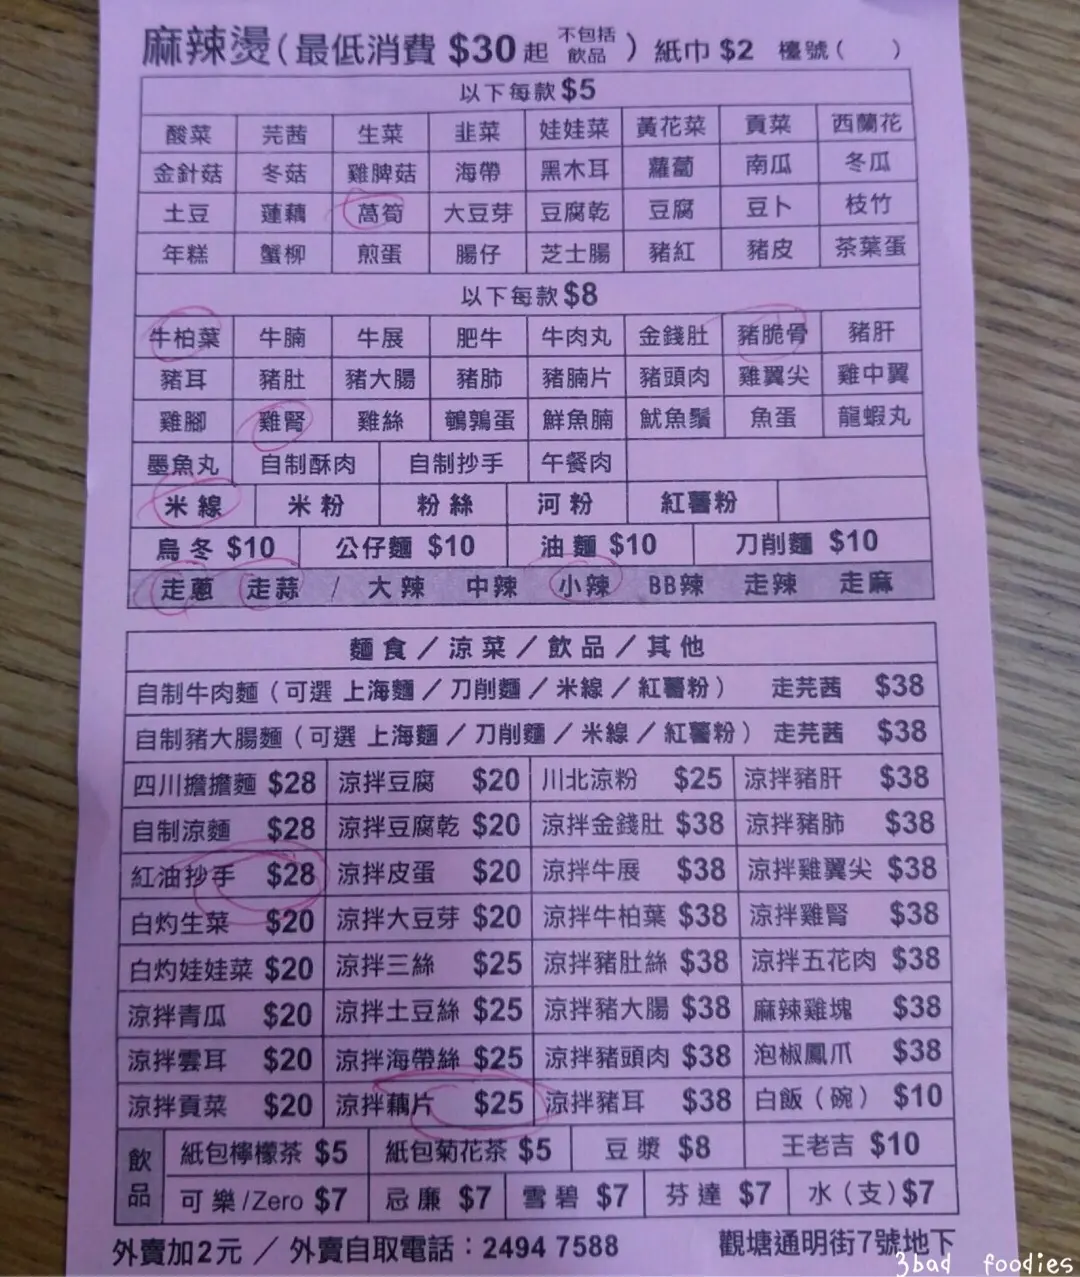 麻辣燙(最低消費 $30起 不包括飲品) 紙巾 $2 檯號( )
以下每款 $5
酸菜 芫茜 生菜 韭菜 娃娃菜 黃花菜 貢菜 西蘭花
金針菇 冬菇 雞脾菇 海帶 黑木耳 蘿蔔 南瓜 冬瓜
土豆 蓮藕 萵筍 大豆芽 豆腐乾 豆腐 豆卜 枝竹
年糕 蟹柳 煎蛋 腸仔 芝士腸 豬紅 豬皮 茶葉蛋
以下每款 $8
牛柏葉 牛腩 牛展 肥牛 牛肉丸 金錢肚 豬脆骨 豬肝
豬耳 豬肚 豬大腸 豬肺 豬腩片 豬頭肉 雞翼尖 雞中翼
雞腳 雞腎 雞絲 鵪鶉蛋 鮮魚腩 魷魚鬚 魚蛋 龍蝦丸
墨魚丸 自制酥肉 自制抄手 午餐肉
米線 米粉 粉絲 河粉 紅薯粉
烏冬 $10 公仔麵 $10 油麵 $10 刀削麵 $10
走蔥 走蒜 / 大辣 中辣 小辣 BB辣 走辣 走麻
麵食/涼菜/飲品/其他
自制牛肉麵(可選 上海麵/刀削麵/米線/紅薯粉) 走芫茜 $38
自制豬大腸麵(可選 上海麵/刀削麵/米線/紅薯粉) 走芫茜 $38
四川擔擔麵 $28 涼拌豆腐 $20 川北涼粉 $25 涼拌豬肝 $38
自制涼麵 $28 涼拌豆腐乾 $20 涼拌金錢肚 $38 涼拌豬肺 $38
紅油抄手 $28 涼拌皮蛋 $20 涼拌牛展 $38 涼拌雞翼尖 $38
白灼生菜 $20 涼拌大豆芽 $20 涼拌牛柏葉 $38 涼拌雞腎 $38
白灼娃娃菜 $20 涼拌三絲 $25 涼拌豬肚絲 $38 涼拌五花肉 $38
涼拌青瓜 $20 涼拌土豆絲 $25 涼拌豬大腸 $38 麻辣雞塊 $38
涼拌雲耳 $20 涼拌海帶絲 $25 涼拌豬頭肉 $38 泡椒鳳爪 $38
涼拌貢菜 $20 涼拌藕片 $25 涼拌豬耳 $38 白飯(碗) $10
飲品 紙包檸檬茶 $5 紙包菊花茶 $5 豆漿 $8 王老吉 $10
可樂/Zero $7 忌廉 $7 雪碧 $7 芬達 $7 水(支) $7
外賣加2元 / 外賣自取電話:2494 7588 觀塘通明街7號地下
3bad foodies